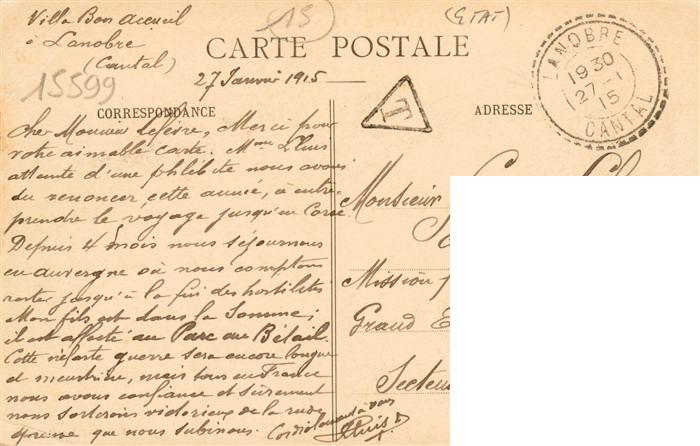 Villa Bon Accueil
à Lanobre
(Cantal)
15
(ETAT)
CARTE POSTALE
27 Janvier 1915
15599
T
LANOBRE
19 30
27 - 1
15
CANTAL
CORRESPONDANCE
ADRESSE
Cher Monsieur Lefèvre, Merci pour
votre aimable carte. Mme Lhuis
atteinte d'une phlébite nous avons
du renoncer, cette année, à entre-
prendre le voyage jusqu'en Corse
Depuis 4 mois nous séjournons
en auvergne où nous comptons
rester jusqu'à la fin des hostilités
Mon fils est dans la Somme;
il est affecté au Parc au Bétail.
Cette néfaste guerre sera encore longue
et meurtrière, mais tous en France
nous avons confiance et sûrement
nous sortirons victorieux de la rude
épreuve que nous subissons. Cordialement à vous
Lhuis
Monsieur
Mission
Grand
Secteu